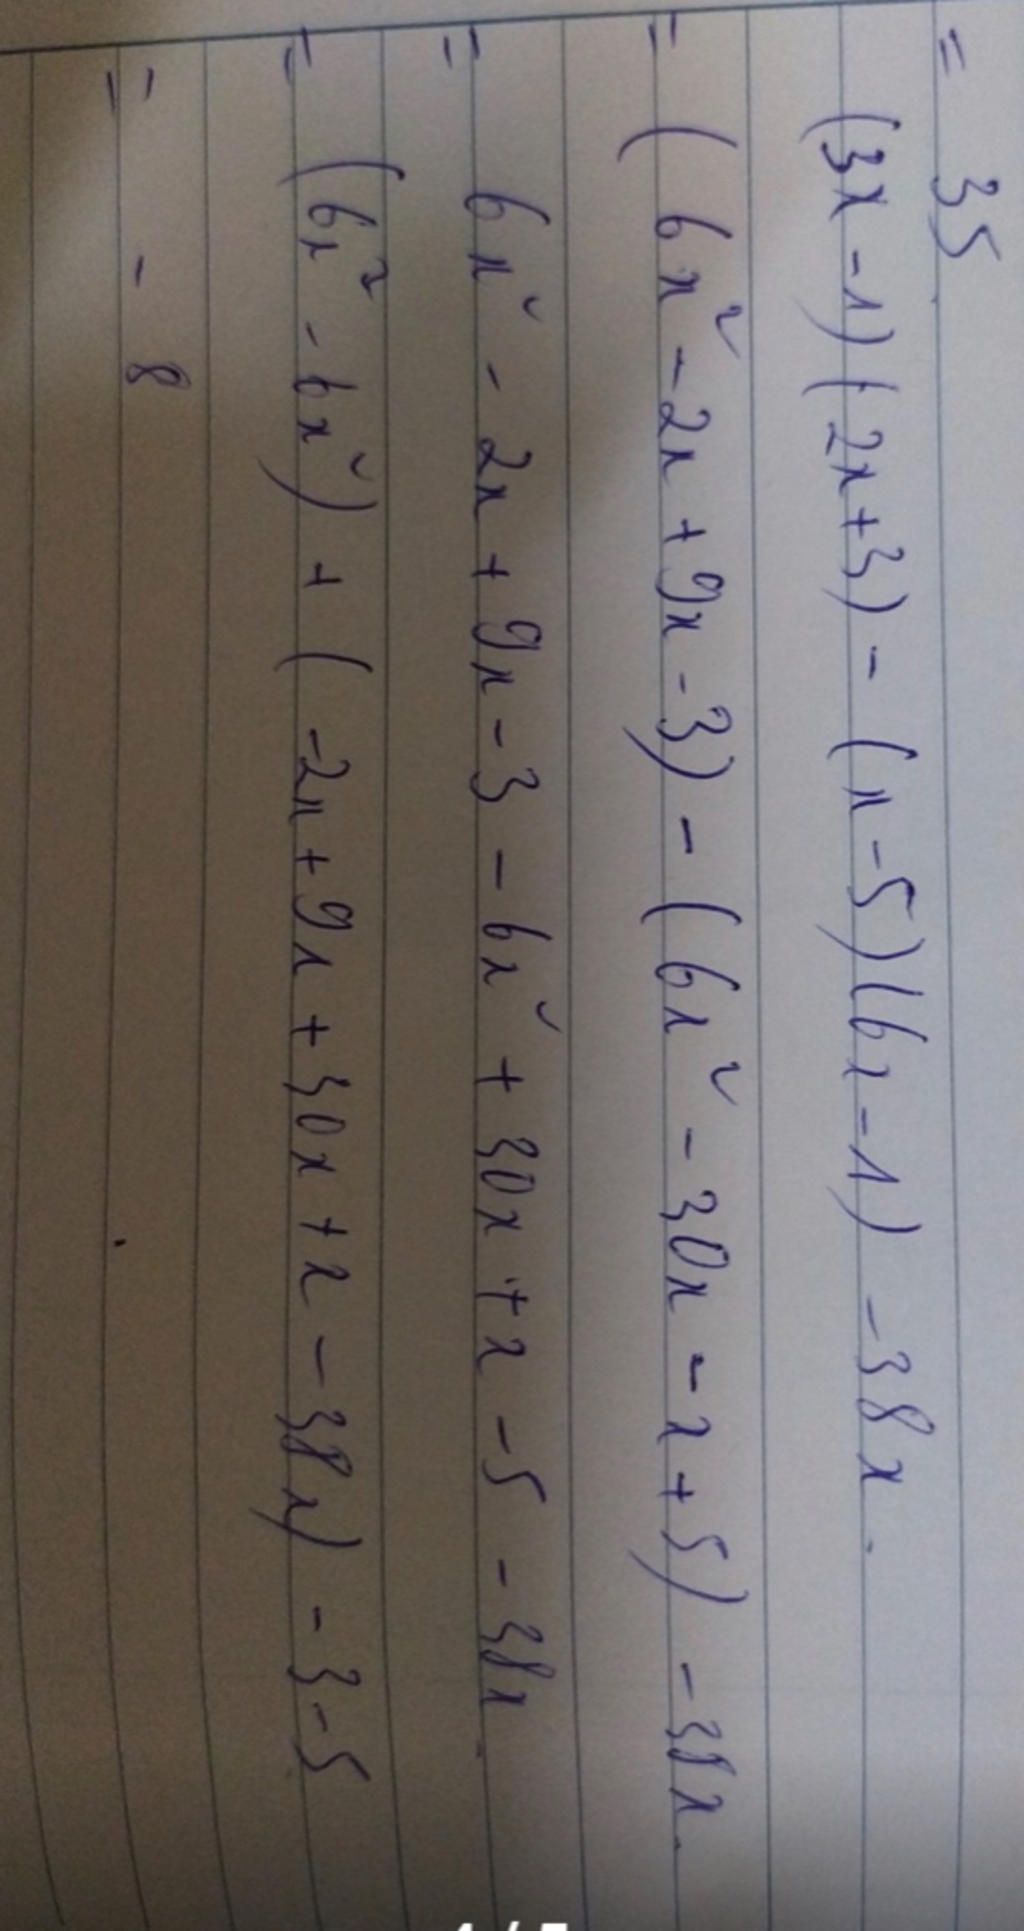 = 35
(3x - 1)(2x + 3) - (x - 5)(6x - 1) - 38x.
= (6x² - 2x + 9x - 3) - (6x² - 30x - x + 5) - 38x.
= 6x² - 2x + 9x - 3 - 6x² + 30x + x - 5 - 38x
= (6x² - 6x²) + (-2x + 9x + 30x + x - 38x) - 3 - 5
= - 8